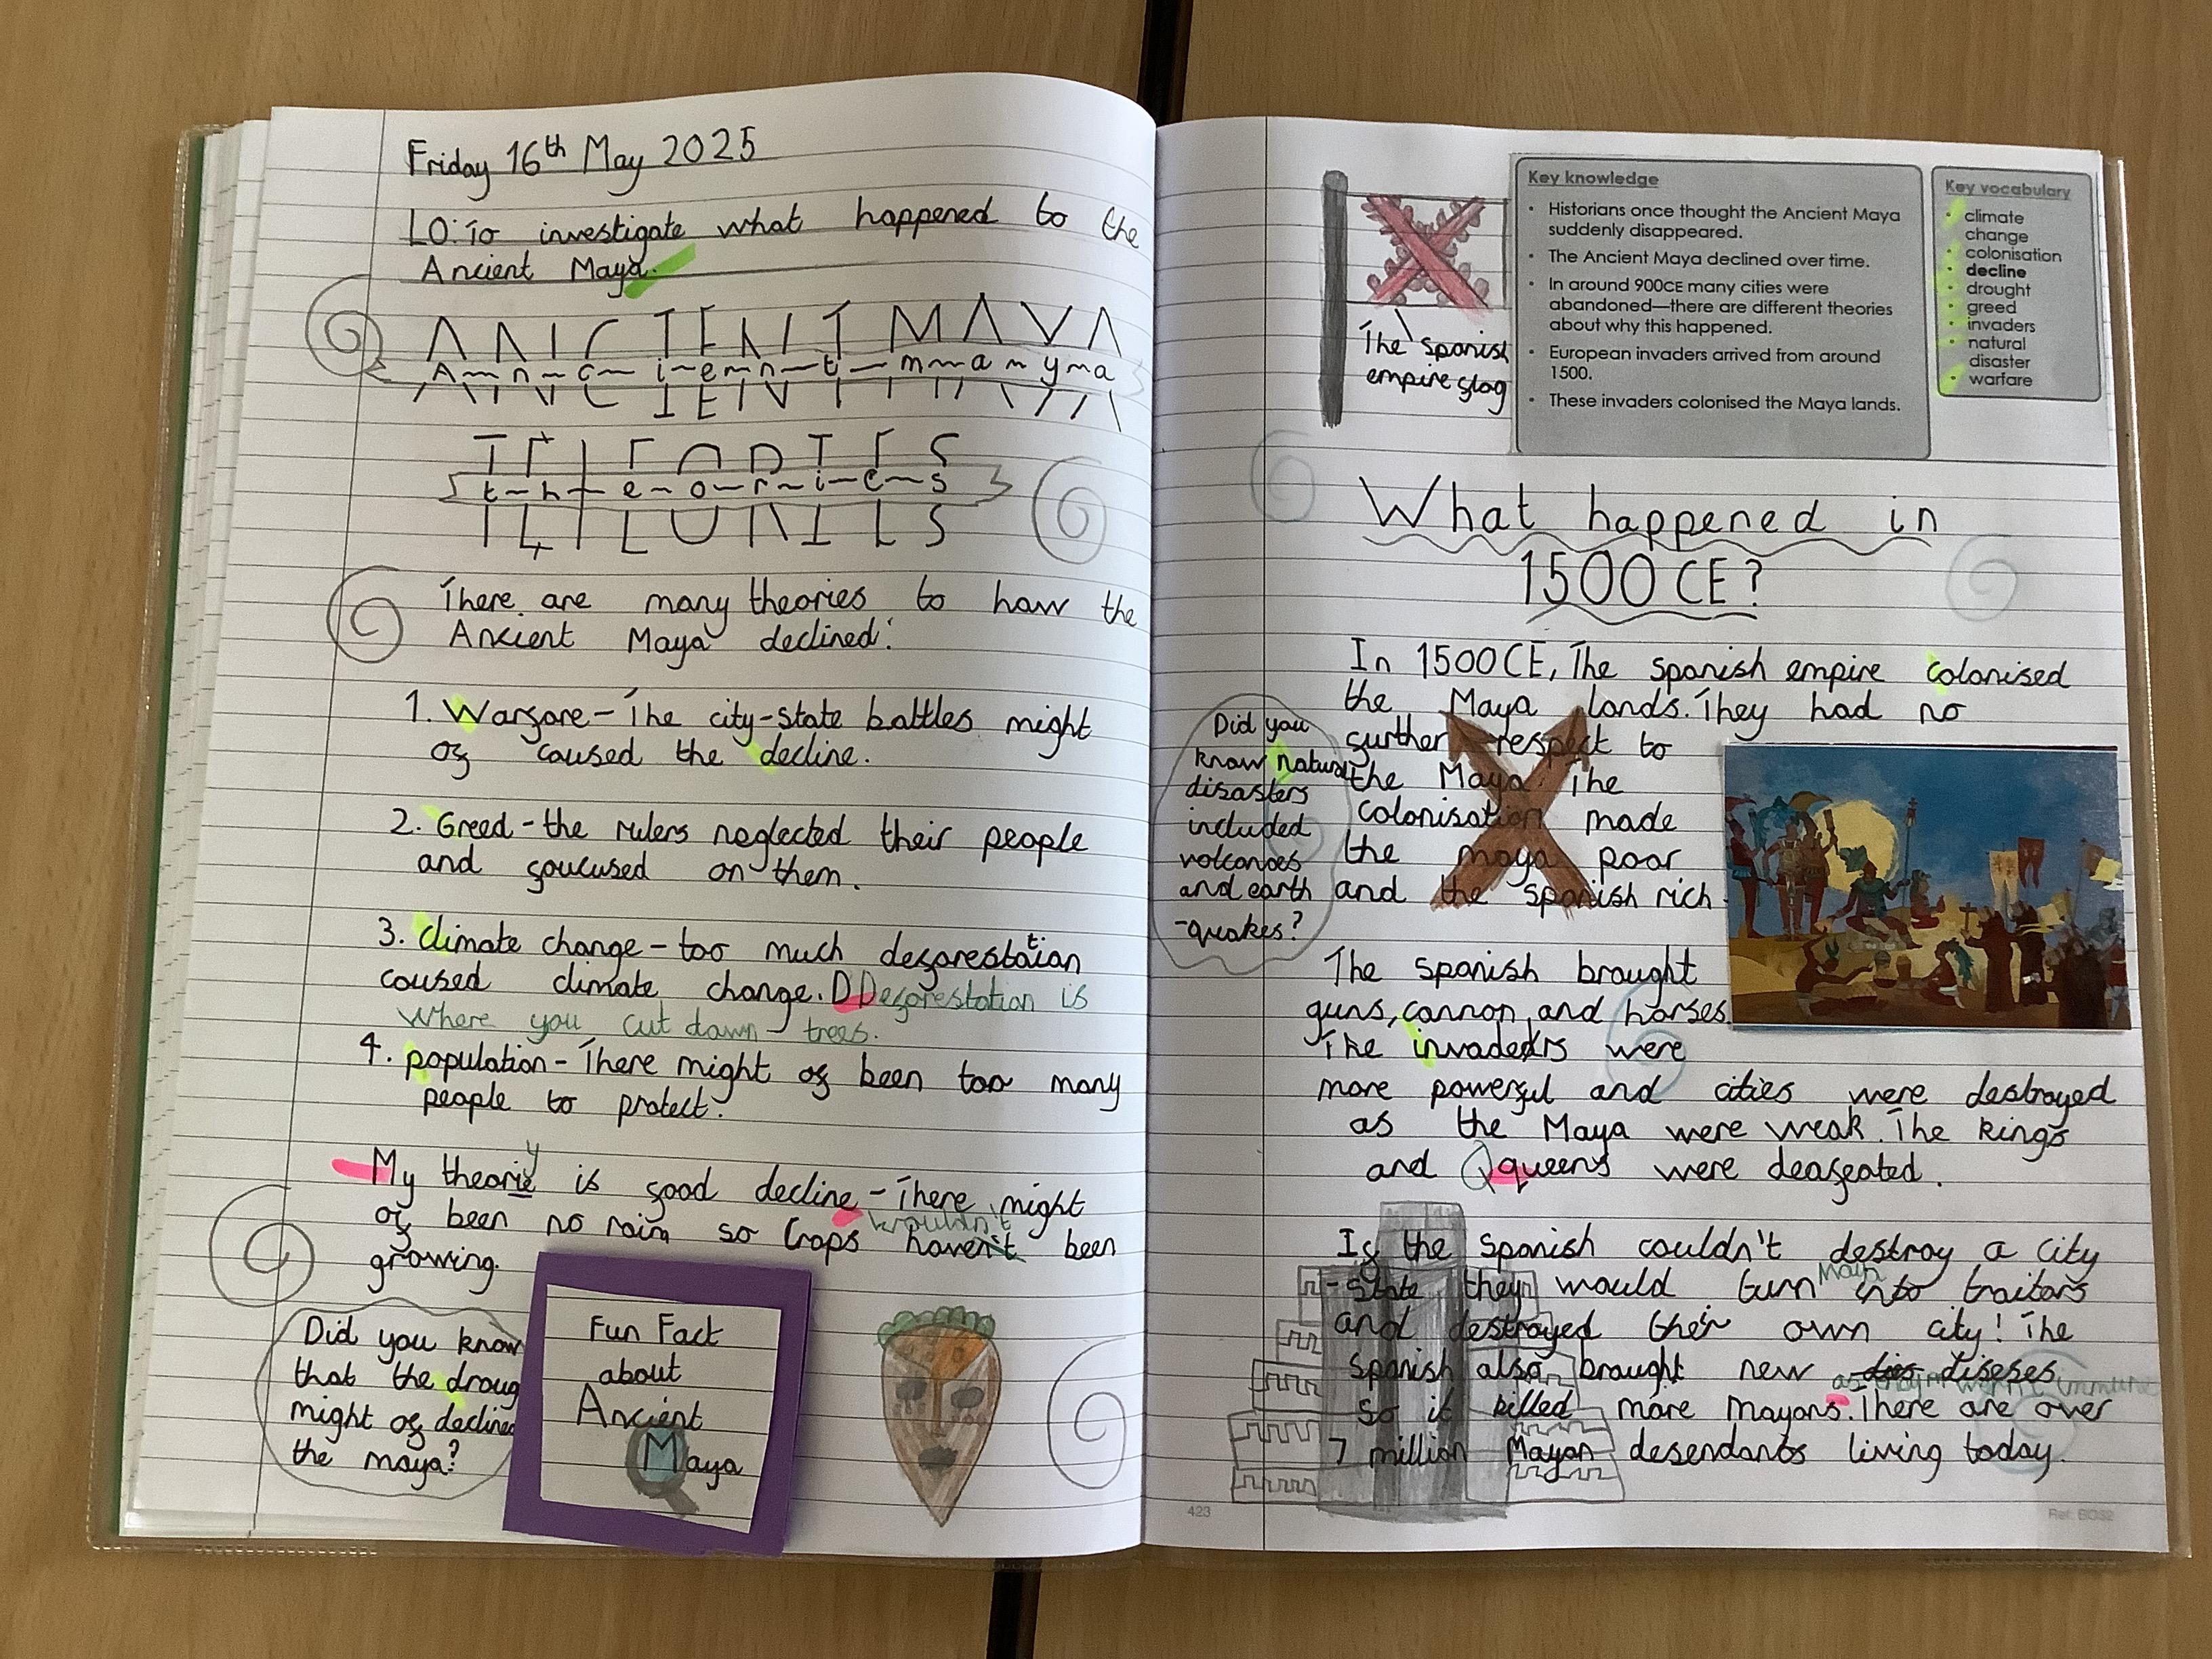 Friday 16th May 2025
LO: To investigate what happened to the
Ancient Maya.
ANCIENT MAYA
A n c i e n t m a y a
THEORIES
t h e o r i e s
There are many theories to how the
Ancient Maya declined:
1. Warfare - The city-state battles might
of caused the decline.
2. Greed - the rulers neglected their people
and foucused on them.
3. climate change - too much deforestation
caused climate change. D Deforestation is
where you cut down trees.
4. population - There might of been too many
people to protect.
y
My theorie is food decline - There might
of been no rain so crops wouldn't haven't been
growing.
Did you know
that the droug
might of declined
the maya?
Fun Fact
about
Ancient
Maya
The Spanish
empire flag
Key knowledge
• Historians once thought the Ancient Maya
suddenly disappeared.
• The Ancient Maya declined over time.
• In around 900CE many cities were
abandoned—there are different theories
about why this happened.
• European invaders arrived from around
1500.
• These invaders colonised the Maya lands.
Key vocabulary
• climate
change
• colonisation
• decline
• drought
• greed
• invaders
• natural
disaster
• warfare
What happened in
1500 CE?
In 1500CE, The Spanish empire colonised
the Maya lands. They had no
further respect to
the Maya. The
colonisation made
the maya poor
and the spanish rich.
Did you
know natural
disasters
included
volcanoes
and earth
-quakes?
The Spanish brought
guns, cannon, and horses.
The invaders were
more powerful and cities were destroyed
as the Maya were weak. The kings
and Q queens were deafeated.
If the Spanish couldn't destroy a city
-state they would turn Maya into traitors
and destroyed their own city! The
Spanish also brought new dies diseses
so it killed more Mayans. There are over
7 million Mayan desendants living today.
423
Ref: BD32